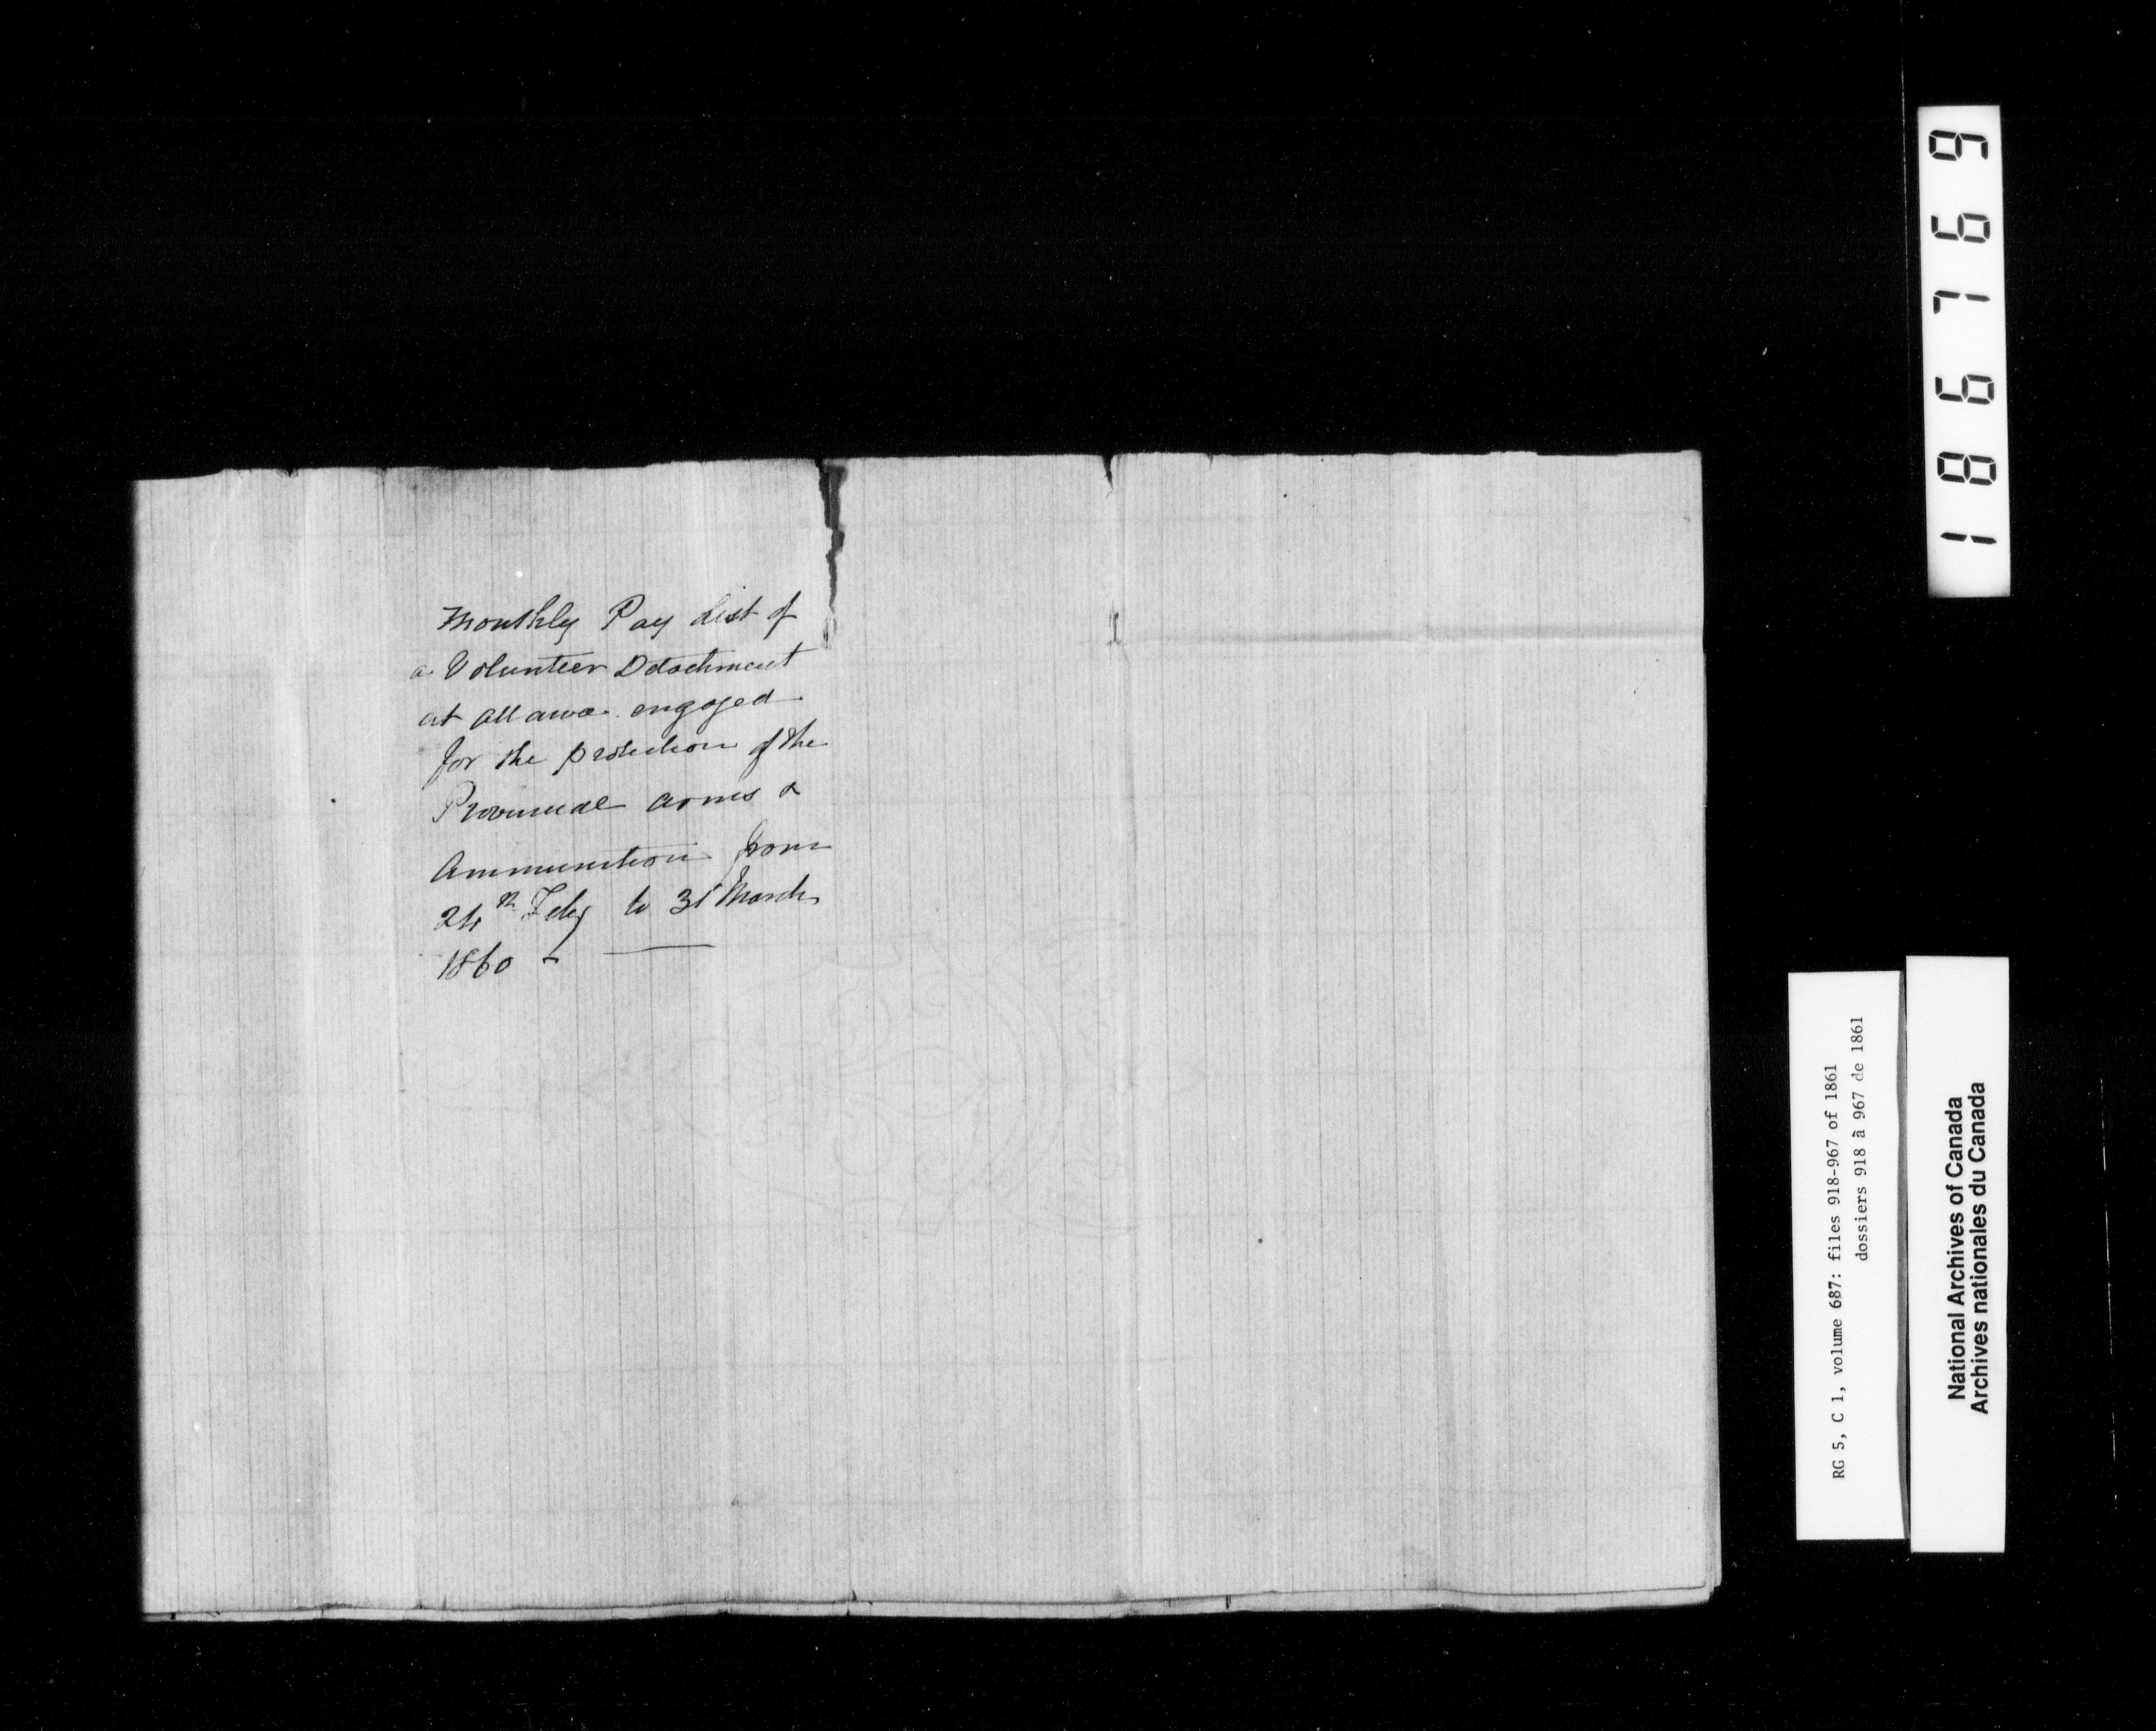 Monthly Pay List of
a Volunteer Detachment
at Ottawa engaged
for the protection of the
Provincial arms &
Ammunition from
24th Feby to 31 March
1860
186769
RG 5, C 1, volume 687: files 918-967 of 1861
dossiers 918 à 967 de 1861
National Archives of Canada
Archives nationales du Canada